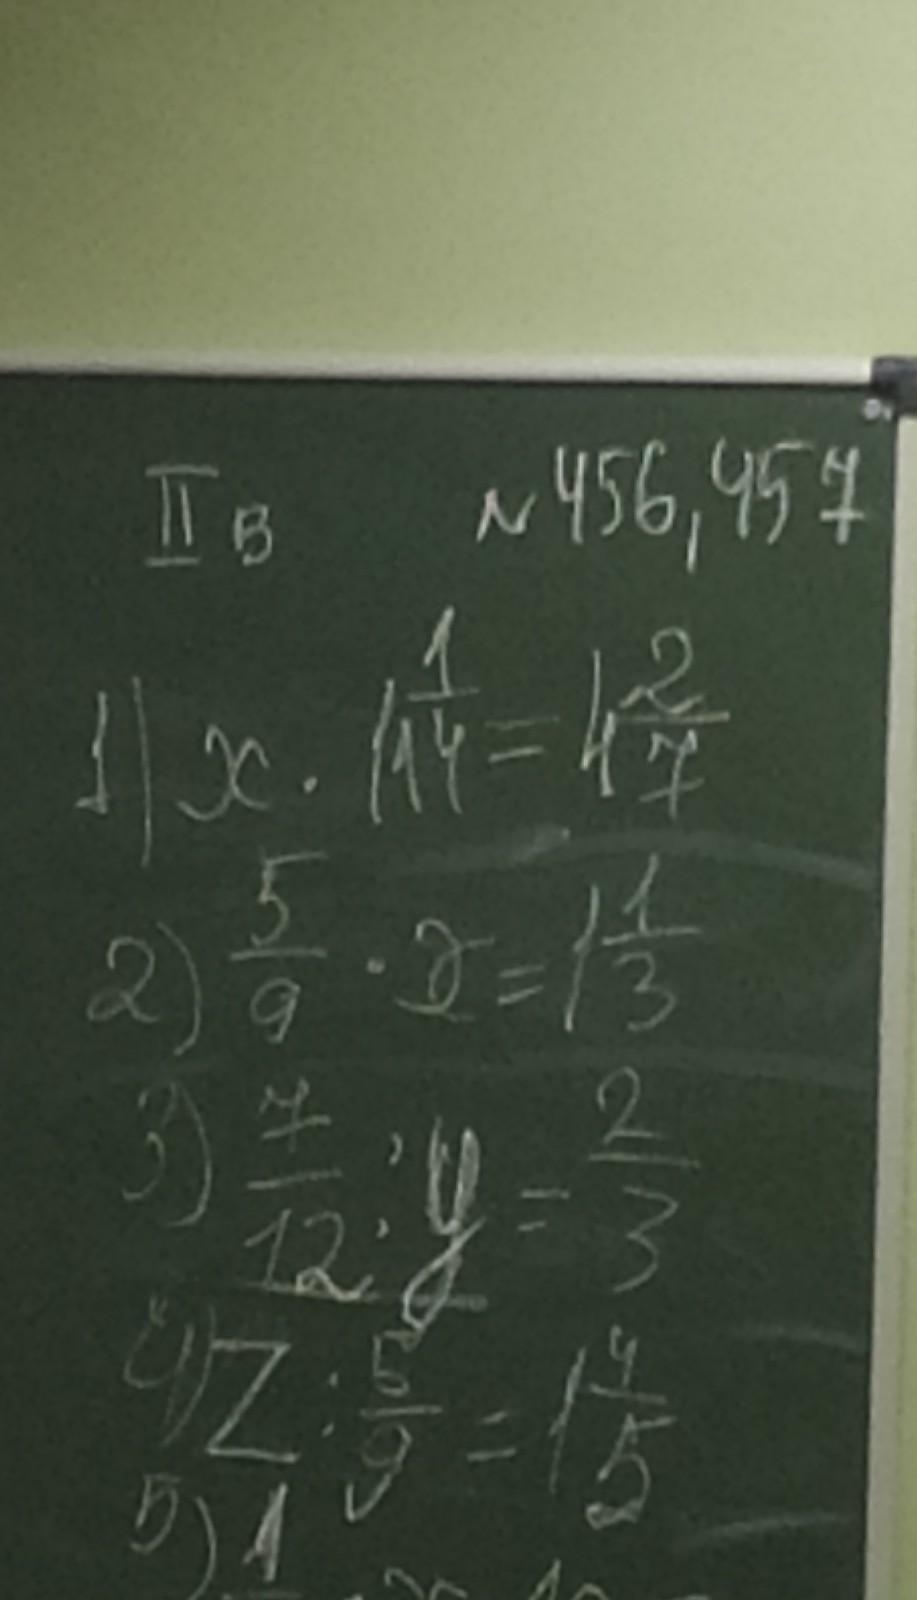 II в № 456, 457
1) x · 1 1/14 = 4 2/7
2) 5/9 · x = 1 1/3
3) 7/12 : y = 2/3
4) Z : 5/9 = 1 4/5
5) 1